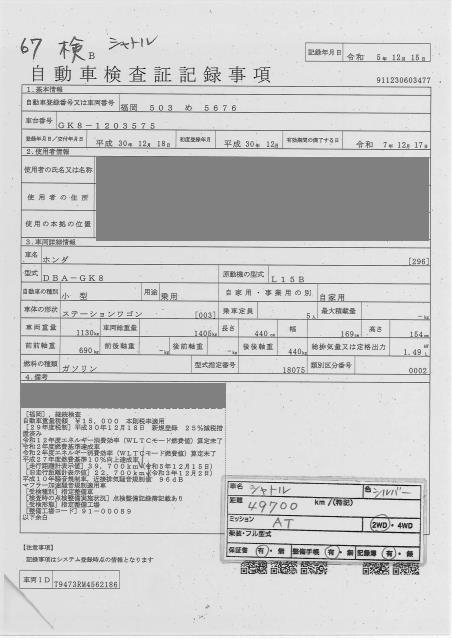 67 検 B シャトル
記録年月日 令和 5年 12月 15日
自動車検査証記録事項
911230603477
1.基本情報
自動車登録番号又は車両番号 福岡 503 め 5676
車台番号 GK8-1203575
登録年月日/交付年月日 平成 30年 12月 18日 初度登録年月 平成 30年 12月 有効期間の満了する日 令和 7年 12月 17日
2.使用者情報
使用者の氏名又は名称
使用者の住所
使用の本拠の位置
3.車両詳細情報
車名 ホンダ [296]
型式 DBA-GK8 原動機の型式 L15B
自動車の種別 小型 用途 乗用 自家用・事業用の別 自家用
車体の形状 ステーションワゴン [003] 乗車定員 5人 最大積載量 -kg
車両重量 1130kg 車両総重量 1405kg 長さ 440cm 幅 169cm 高さ 154cm
前前軸重 690kg 前後軸重 -kg 後前軸重 -kg 後後軸重 440kg 総排気量又は定格出力 1.49L
燃料の種類 ガソリン 型式指定番号 18075 類別区分番号 0002
4.備考
[福岡],継続検査
自動車重量税額 ¥15,000 本則税率適用
[29年度税制]平成30年12月18日 新規登録 25%減税措置済み
令和12年度エネルギー消費効率(WLTCモード燃費値)算定未了
令和2年度燃費基準達成車
令和2年度エネルギー消費効率(WLTCモード燃費値)算定未了
平成27年度燃費基準10%向上達成車
[走行距離計表示値]39,700km(令和5年12月15日)
[旧走行距離計表示値]22,700km(令和3年12月2日)
平成10年騒音規制車、近接排気騒音規制値 96dB
マフラー加速騒音規制適用車
[受検種別]指定整備車
[検査時の点検整備実施状況]点検整備記録簿記載あり
[受検形態]指定整備工場
[整備工場コード]91-00089
以下余白
車名 シャトル 色 シルバー
距離 49700 km/(特記)
ミッション AT 2WD・4WD
架装・フル型式
保証書 有・無 整備手帳 有・無 記録簿 有・無
【注意事項】
記録事項はシステム登録時点の情報となります
車両ID 79473RM4562186